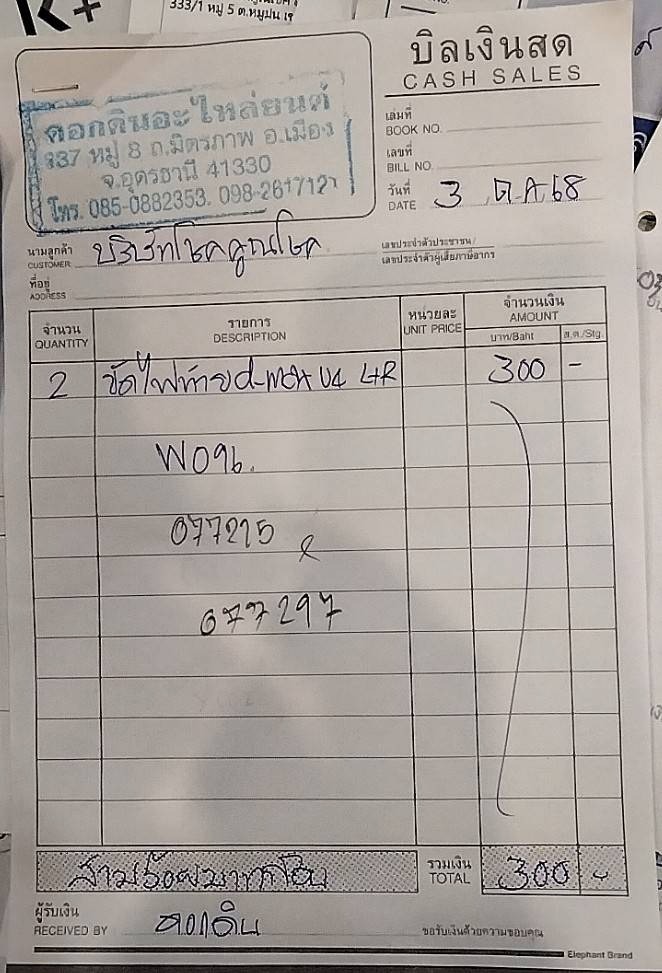 333/1 หมู่ 5 ต.หมูม่น
K+
บิลเงินสด
CASH SALES
ดอกดินอะไหล่ยนต์
337 หมู่ 8 ถ.มิตรภาพ อ.เมือง
จ.อุดรธานี 41330
โทร. 085-0882353. 098-2617127
เล่มที่
BOOK NO.
เลขที่
BILL NO.
วันที่
DATE 3 ต.ค 68
นามลูกค้า
CUSTOMER บริษัทโชคคูณโชค
เลขประจำตัวประชาชน/
เลขประจำตัวผู้เสียภาษีอากร
ที่อยู่
ADDRESS
จำนวน
QUANTITY
รายการ
DESCRIPTION
หน่วยละ
UNIT PRICE
จำนวนเงิน
AMOUNT
บาท/Baht ส.ต./Stg.
2 ไฟท้าย d-max V4 L+R 300 -
W096.
077215 &
077297
สามร้อยบาทถ้วน
รวมเงิน
TOTAL 300 -
ผู้รับเงิน
RECEIVED BY ดอกดิน
ขอรับเงินด้วยความขอบคุณ
Elephant Brand